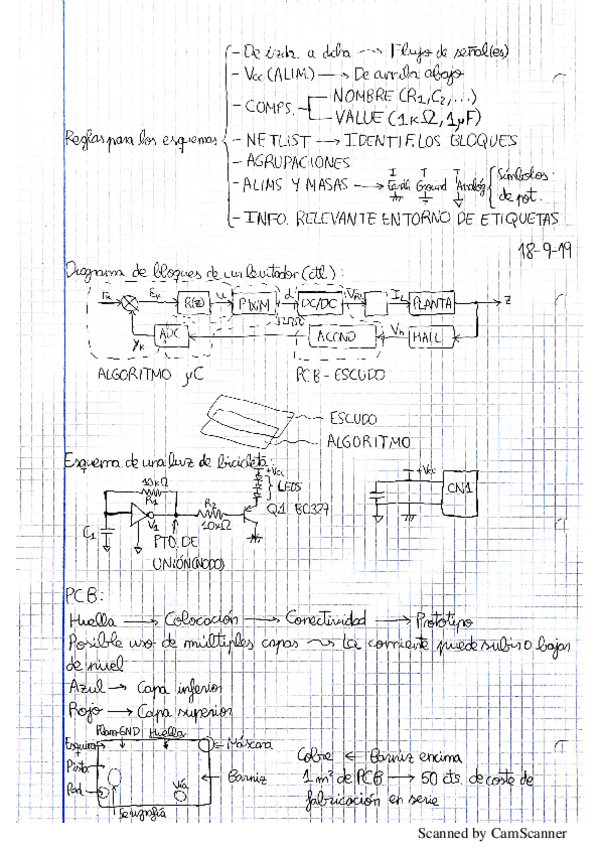 - De izda. a dcha ⟶ Flujo de señal(es)
- Vcc (ALIM.) ⟶ De arriba abajo
- COMPS.
- NOMBRE (R1, C2, ...)
- VALUE (1KΩ, 1μF)
Reglas para los esquemas
- NETLIST ⟶ IDENTIF. LOS BLOQUES
- AGRUPACIONES
- ALIMS Y MASAS ⟶ Earth Ground Analóg.
Símbolos de pot.
- INFO. RELEVANTE ENTORNO DE ETIQUETAS
18-9-19
Diagrama de bloques de un levitador (ctl):
rk Ek R(z) u PWM d DC/DC IL PLANTA z
yk ADC ACOND Vh HALL
ALGORITMO μC PCB - ESCUDO
ESCUDO
ALGORITMO
Esquema de una luz de bicicleta:
+Vcc
LEDS
10KΩ
R1
R2
10KΩ
Q1 BC327
C1
V1
PTO. DE
UNIÓN (NODO)
+Vcc
CN1
PCB:
Huella ⟶ Colocación ⟶ Conectividad ⟶ Prototipo
Posible uso de múltiples capas ⟶ La corriente puede subir o bajar
de nivel
Azul ⟶ Capa inferior
Rojo ⟶ Capa superior
Plano GND Huella
Máscara
Pista
Pad
Vía
Barniz
Serigrafía
Cobre ⟵ Barniz encima
1 m² de PCB ⟶ 50 cts. de coste de
fabricación en serie
Scanned by CamScanner